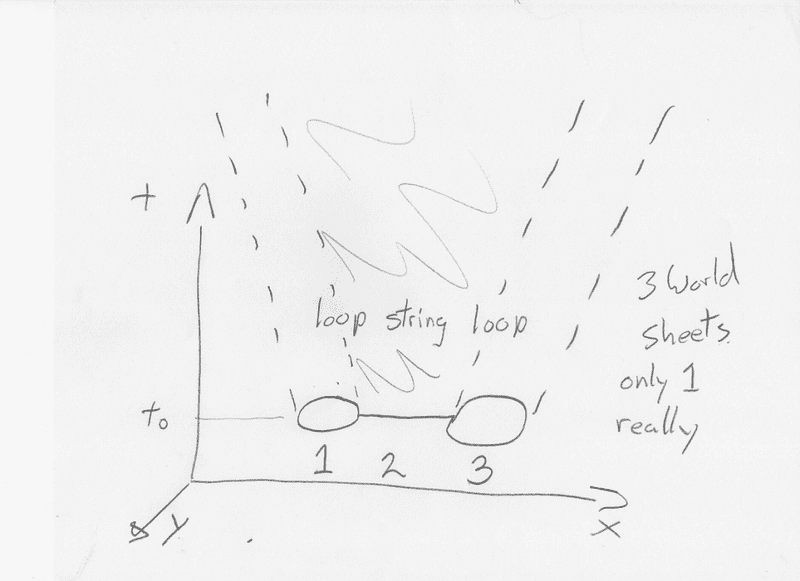 t
loop string loop
3 World
sheets
only 1
really
t₀
1 2 3
x
y